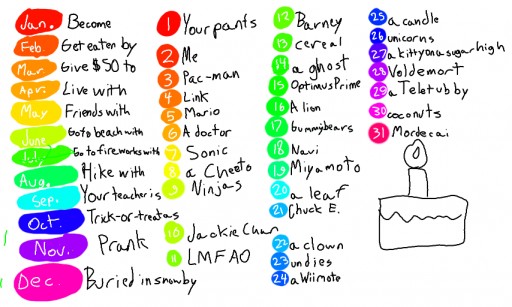 Jan. Become
Feb. Get eaten by
Mar. Give $50 to
Apr. Live with
May Friends with
June Go to beach with
Jul. Go to fireworks with
Aug. Hike with
Sep. Your teacher is
Oct. Trick-or-treat as
Nov. Prank
Dec. Buried in snow by
1 Your pants
2 Me
3 Pac-man
4 Link
5 Mario
6 A doctor
7 Sonic
8 a Cheeto
9 Ninjas
10 Jackie Chan
11 LMFAO
12 Barney
13 cereal
14 a ghost
15 Optimus Prime
16 A lion
17 Gummybears
18 Navi
19 Miyamoto
20 a leaf
21 Chuck E.
22 a clown
23 undies
24 a Wiimote
25 a candle
26 unicorns
27 a kitty on a sugar high
28 Voldemort
29 a Teletubby
30 coconuts
31 Mordecai